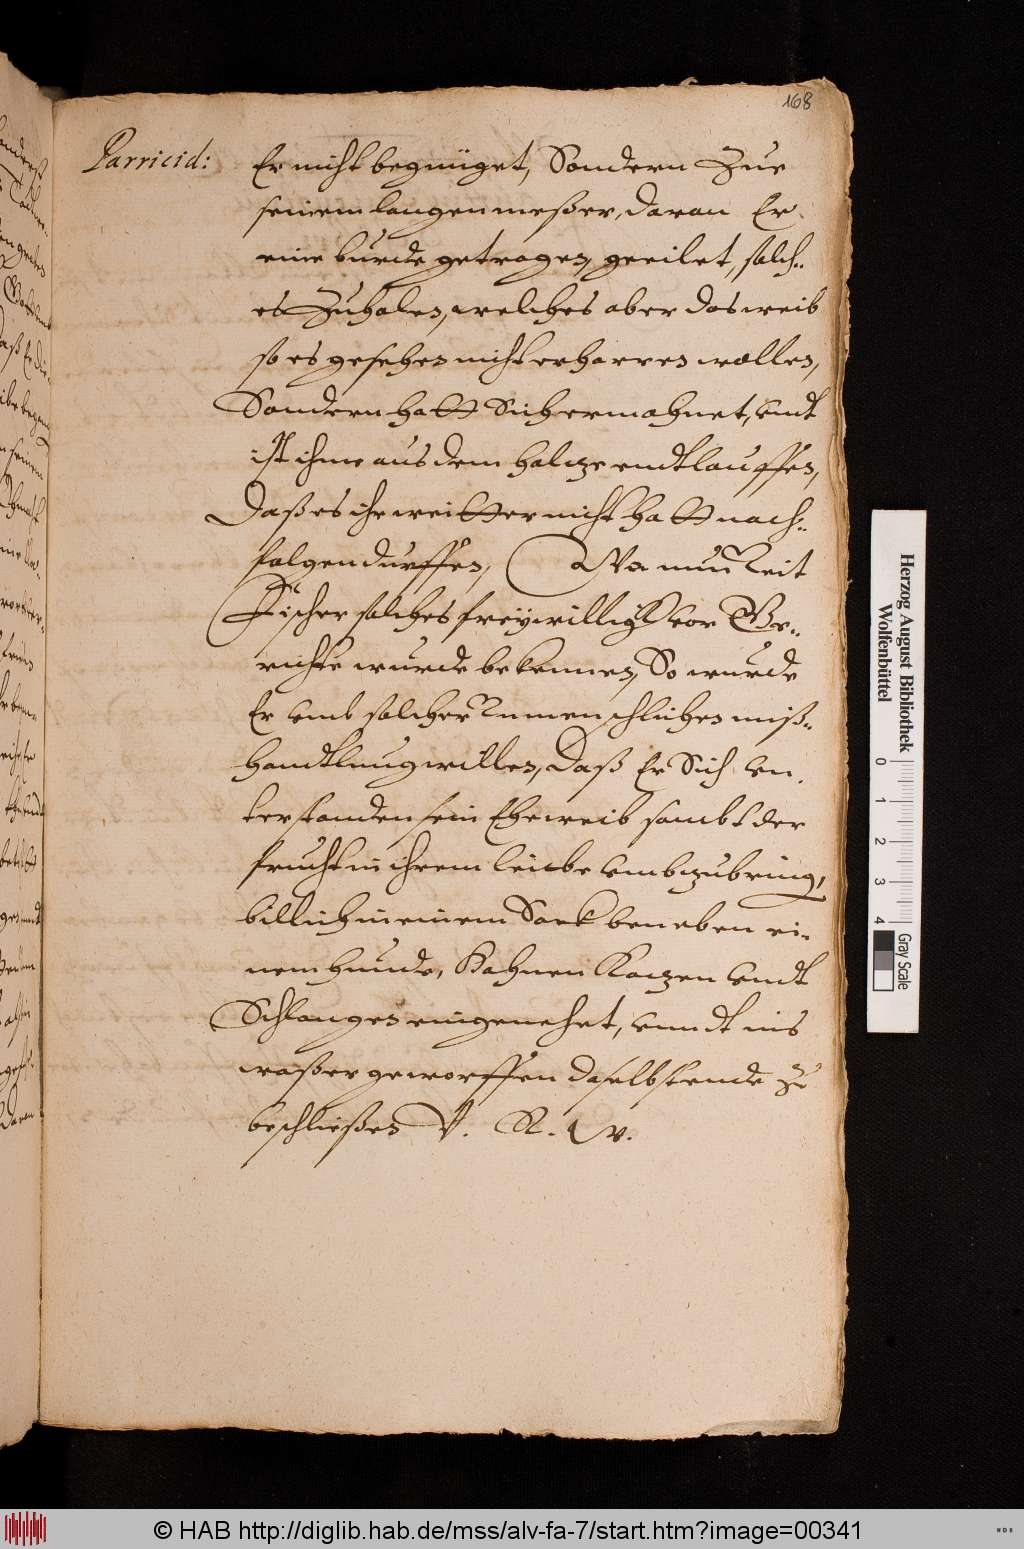 168
Parricid:
Er nicht begnüget, Sondern Zue
seinem langen meßer, daran Er
eine burde getragen, geeilet, solch-
es Zuholen, welches aber das weib
so es gesehen nicht erharren wollen,
Sondern hatt Sich ermahnet, vndt
ist ihme aus dem holcze endtlauffen,
Daß es ihr weitter nicht hatt nach-
folgen durffen, Wa nun Veit
Fischer solches freywillig vor Ge-
richte wurde bekennen, So wurde
Er vmb solcher Vnmenschlichen miß-
handtlung willen, Daß Er Sich vn-
terstanden sein Eheweib sambt der
frucht in ihrem leibe vmbzubring,
billich in einem Sack beneben ei-
nem hunde, Hahnen Kaczen vndt
Schlangen eingenehet, vnndt ins
waßer geworffen daselbst ende zu
beschließen V. R. W.
Herzog August Bibliothek
Wolfenbüttel
0 1 2 3 4
Gray Scale
© HAB http://diglib.hab.de/mss/alv-fa-7/start.htm?image=00341